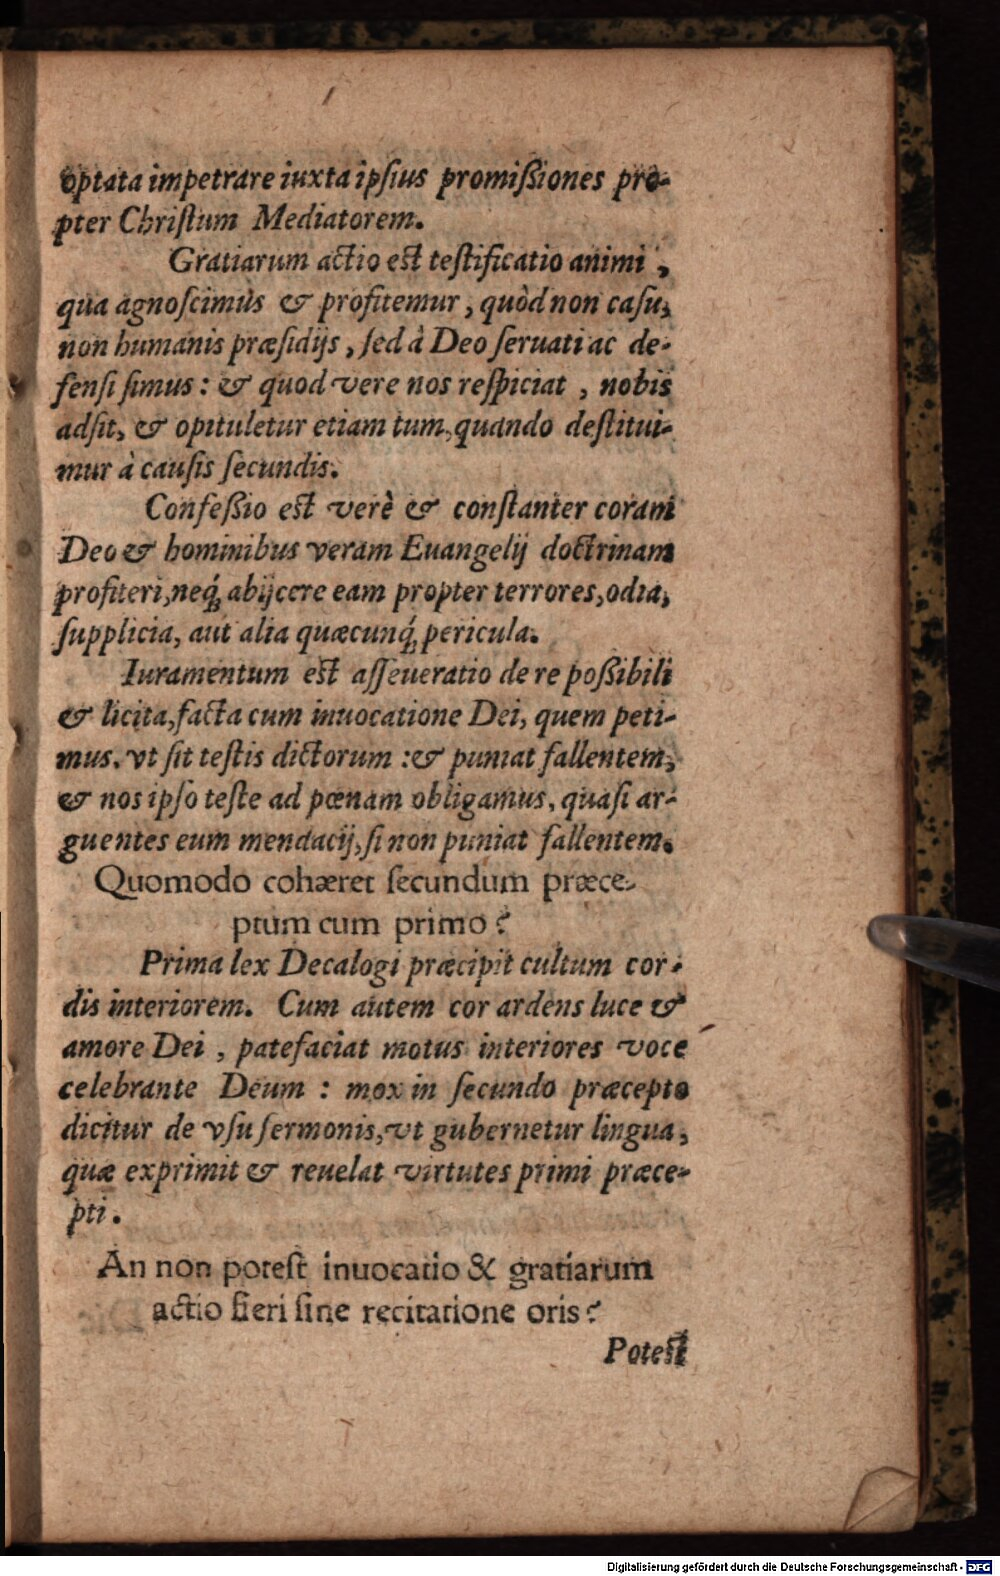 optata impetrare iuxta ipſius promiſsiones pro-
pter Chriſtum Mediatorem.
Gratiarum actio eſt teſtificatio animi,
qua agnoſcimus & profitemur, quòd non caſu,
non humanis præſidijs, ſed à Deo ſeruati ac de-
fenſi ſimus: & quod vere nos reſpiciat, nobis
adſit, & opituletur etiam tum, quando deſtitui-
mur à cauſis ſecundis.
Confeſsio eſt verè & conſtanter coram
Deo & hominibus veram Euangelij doctrinam
profiteri, neq́; abijcere eam propter terrores, odia,
ſupplicia, aut alia quæcunq́; pericula.
Iuramentum eſt aſſeueratio de re poſsibili
& licita, facta cum inuocatione Dei, quem peti-
mus. vt ſit teſtis dictorum: & puniat fallentem,
& nos ipſo teſte ad pœnam obligamus, quaſi ar-
guentes eum mendacij, ſi non puniat fallentem.
Quomodo cohæret ſecundum præce-
ptum cum primo?
Prima lex Decalogi præcipit cultum cor-
dis interiorem. Cum autem cor ardens luce &
amore Dei, patefaciat motus interiores voce
celebrante Deum: mox in ſecundo præcepto
dicitur de vſu ſermonis, vt gubernetur lingua,
quæ exprimit & reuelat virtutes primi præce-
pti.
An non poteſt inuocatio & gratiarum
actio fieri ſine recitatione oris?
Poteſt
Digitalisierung gefördert durch die Deutsche Forschungsgemeinschaft - DFG